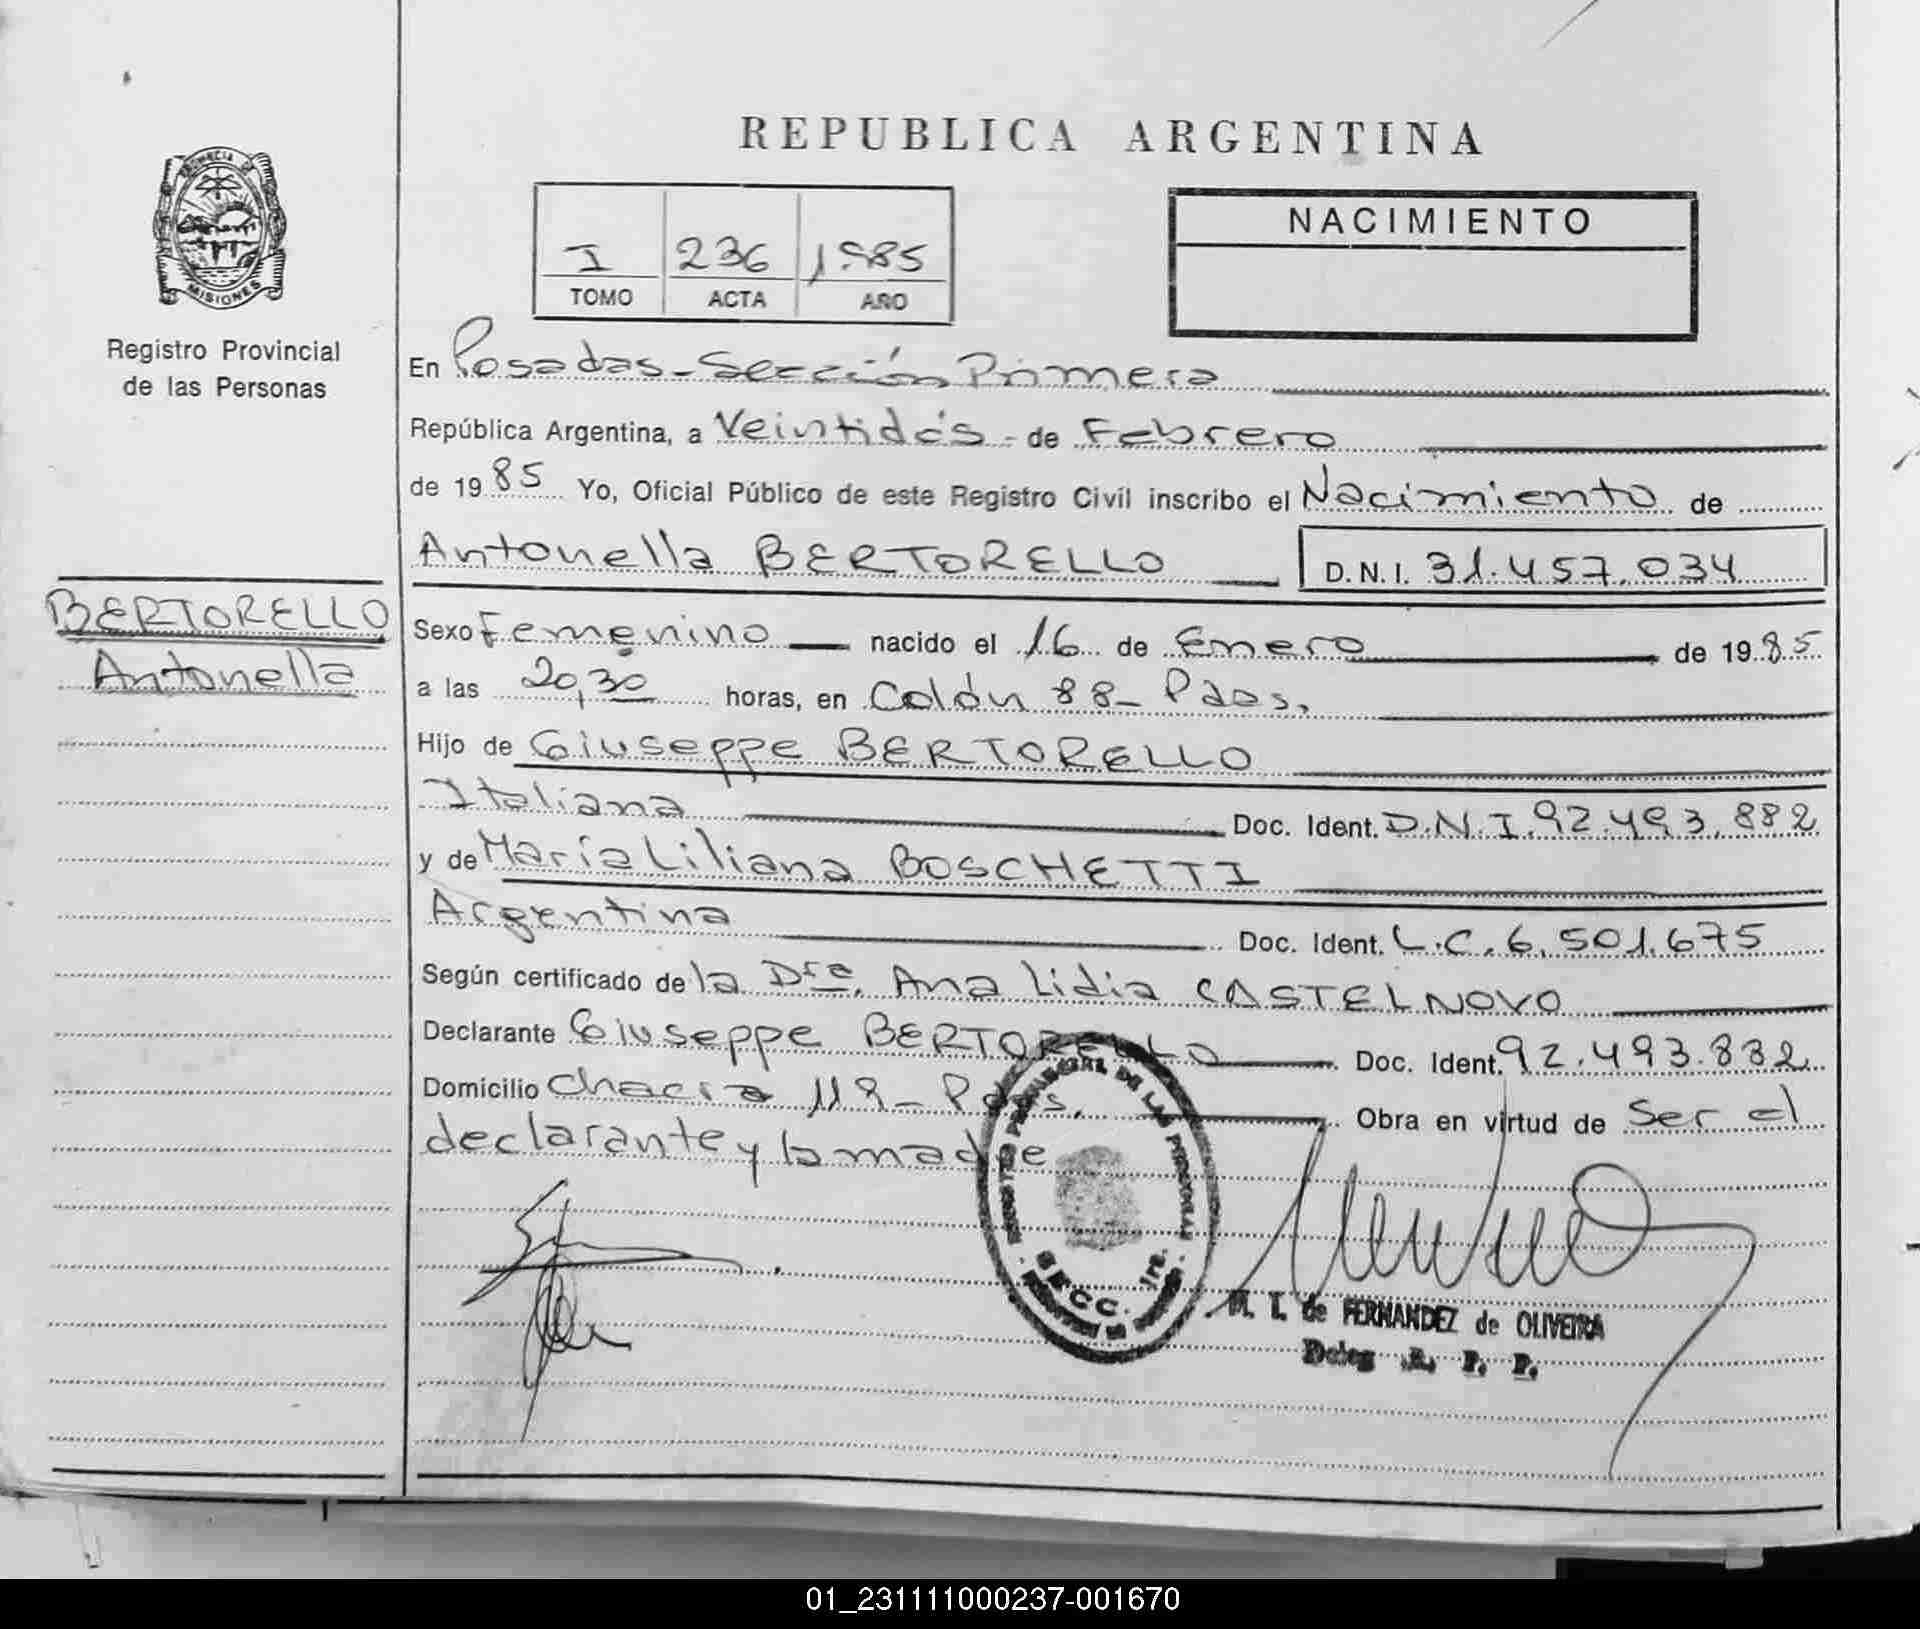 REPUBLICA ARGENTINA
PROVINCIA DE
MISIONES
Registro Provincial
de las Personas
I 236 1985
TOMO ACTA AÑO
NACIMIENTO
En Posadas - Sección Primera
República Argentina, a Veintidós - de Febrero
de 1985 Yo, Oficial Público de este Registro Civil inscribo el Nacimiento de
Antonella BERTORELLO D.N.I. 31.457.034
BERTORELLO
Antonella
Sexo Femenino nacido el 16 de Enero de 1985
a las 20,30 horas, en Colón 88 - Pdas.
Hijo de Giuseppe BERTORELLO
Italiana Doc. Ident. D.N.I. 92.493.882
y de María Liliana BOSCHETTI
Argentina Doc. Ident. L.C. 6.501.675
Según certificado de la Dra. Ana Lidia CASTELNOVO
Declarante Giuseppe BERTORELLO Doc. Ident. 92.493.882
Domicilio Chacra 119 - Pdas. Obra en virtud de Ser el
declarante y la madre
REGISTRO PROVINCIAL DE LAS PERSONAS
SECC. 1ra.
M. I. de FERNANDEZ de OLIVEIRA
Deleg R. P. P.
01_231111000237-001670